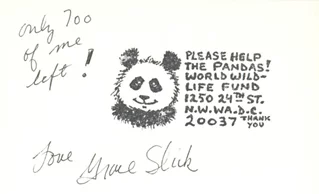 only 700
of me
left!
PLEASE HELP
THE PANDAS!
WORLD WILD-
LIFE FUND
1250 24TH ST.
N.W. WA. D.C.
20037 THANK
YOU
Love Grace Slick